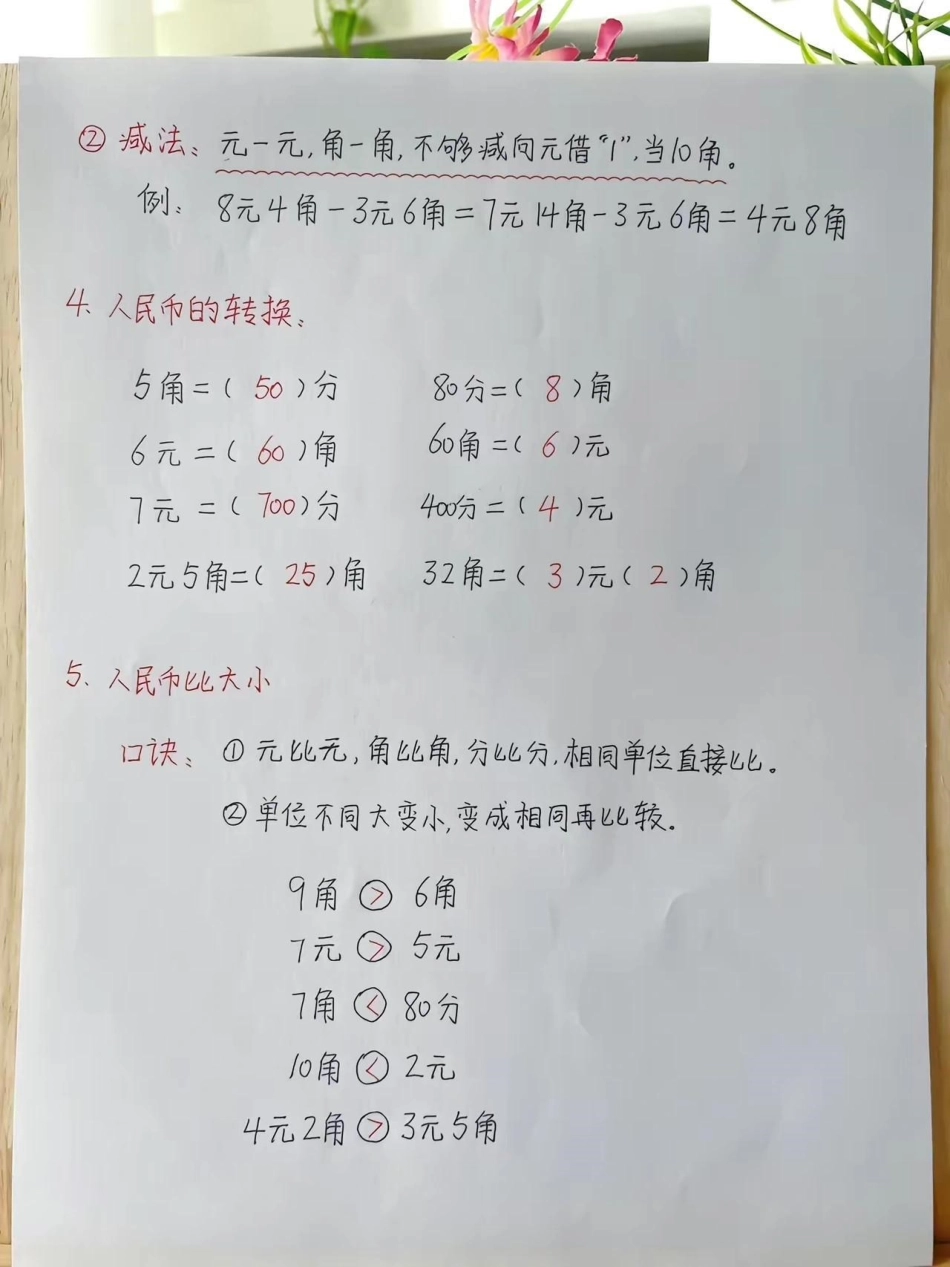 ② 减法：元-元，角-角，不够减向元借“1”，当10角。
例：8元4角-3元6角=7元14角-3元6角=4元8角
4、人民币的转换：
5角=（50）分 80分=（8）角
6元=（60）角 60角=（6）元
7元=（700）分 400分=（4）元
2元5角=（25）角 32角=（3）元（2）角
5、人民币比大小
口诀：① 元比元，角比角，分比分，相同单位直接比。
② 单位不同大变小，变成相同再比较。
9角 > 6角
7元 > 5元
7角 < 80分
10角 < 2元
4元2角 > 3元5角